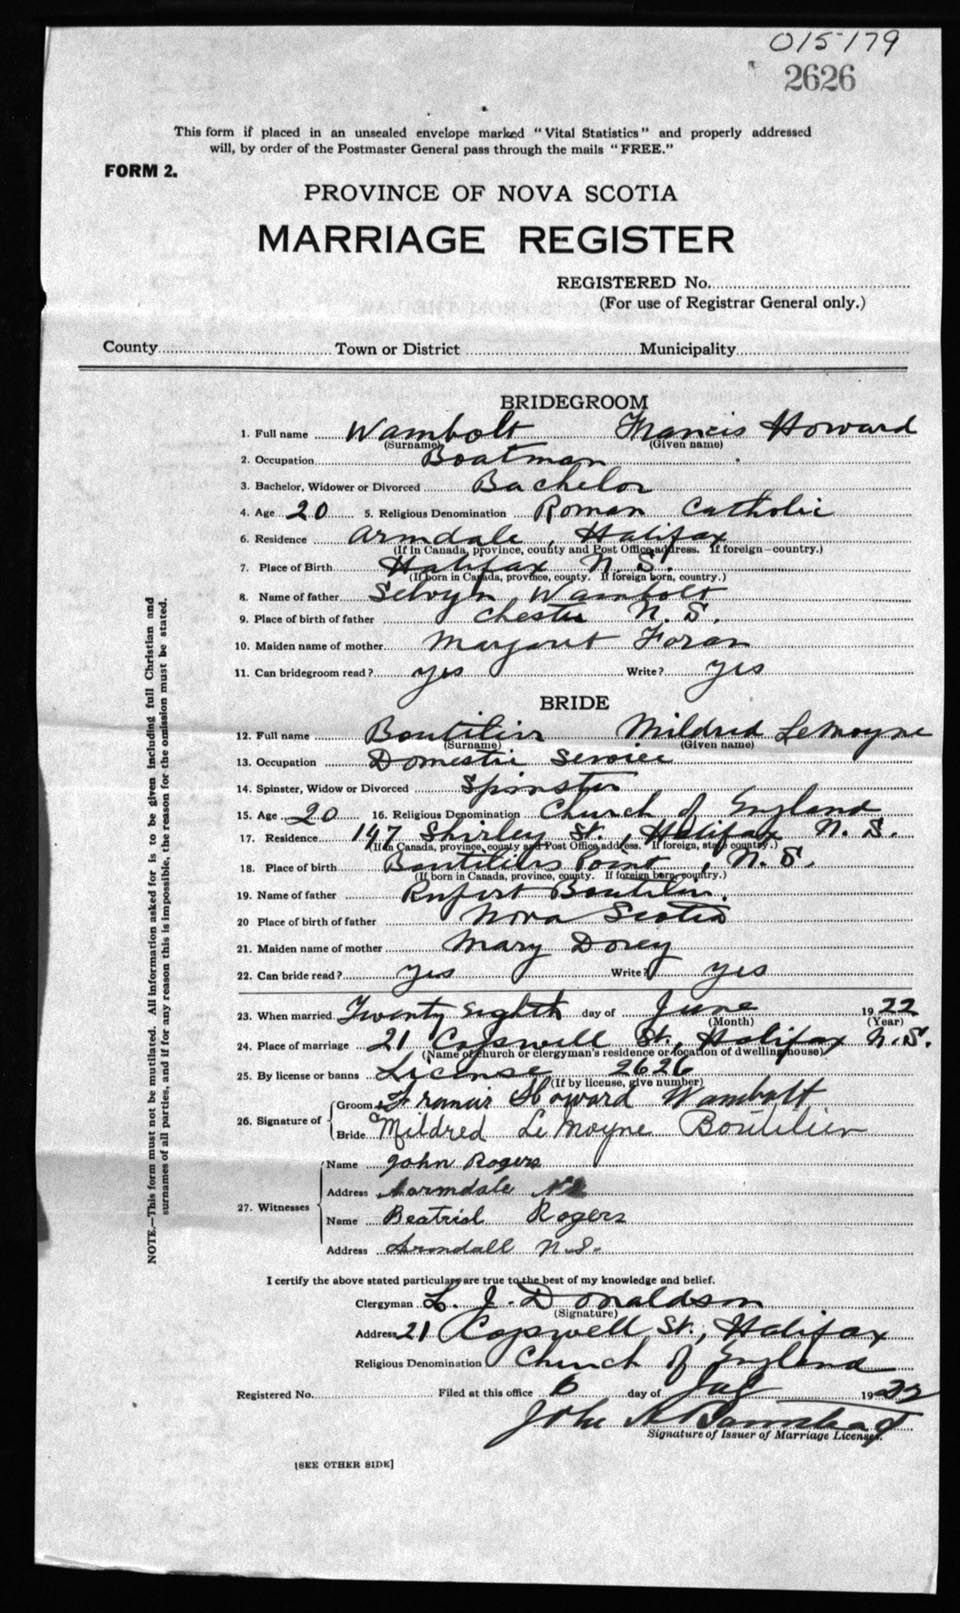 015179
2626
This form if placed in an unsealed envelope marked "Vital Statistics" and properly addressed
will, by order of the Postmaster General pass through the mails "FREE."
FORM 2.
PROVINCE OF NOVA SCOTIA
MARRIAGE REGISTER
REGISTERED No.
(For use of Registrar General only.)
County Town or District Municipality
BRIDEGROOM
1. Full name Wambolt Francis Howard
(Surname) (Given name)
2. Occupation Boatman
3. Bachelor, Widower or Divorced Bachelor
4. Age 20 5. Religious Denomination Roman Catholic
6. Residence Armdale, Halifax
(If in Canada, province, county and Post Office address. If foreign—country.)
7. Place of Birth Halifax N. S.
(If born in Canada, province, county. If foreign born, country.)
8. Name of father Selvyn Wambolt
9. Place of birth of father Chester N. S.
10. Maiden name of mother Margaret Foran
11. Can bridegroom read? yes Write? yes
BRIDE
12. Full name Boutilier Mildred LeMoyne
(Surname) (Given name)
13. Occupation Domestic Service
14. Spinster, Widow or Divorced Spinster
15. Age 20 16. Religious Denomination Church of England
17. Residence 147 Shirley St., Halifax N. S.
(If in Canada, province, county and Post Office address. If foreign, state country.)
18. Place of birth Boutiliers Point, N. S.
(If born in Canada, province, county. If foreign born, country.)
19. Name of father Rupert Boutilier
20 Place of birth of father Nova Scotia
21. Maiden name of mother Mary Dorey
22. Can bride read? yes Write? yes
23. When married Twenty eighth day of June 1922
(Month) (Year)
24. Place of marriage 21 Cogswell St., Halifax N.S.
(Name of church or clergyman's residence or location of dwelling house)
25. By license or banns License 2626
(If by license, give number)
26. Signature of Groom Francis Howard Wambolt
Bride Mildred LeMoyne Boutilier
27. Witnesses
Name John Rogers
Address Aarmdale N S
Name Beatriol Rogers
Address Armdall N.S.
I certify the above stated particulars are true to the best of my knowledge and belief.
Clergyman L. J. Donaldson
(Signature)
Address 21 Cogswell St., Halifax
Religious Denomination Church of England
Registered No. Filed at this office 6 day of July 1922
John
Signature of Issuer of Marriage Licenses.
[SEE OTHER SIDE]
NOTE.—This form must not be mutilated. All information asked for is to be given including full Christian and
surnames of all parties, and if for any reason this is impossible, the reason for the omission must be stated.